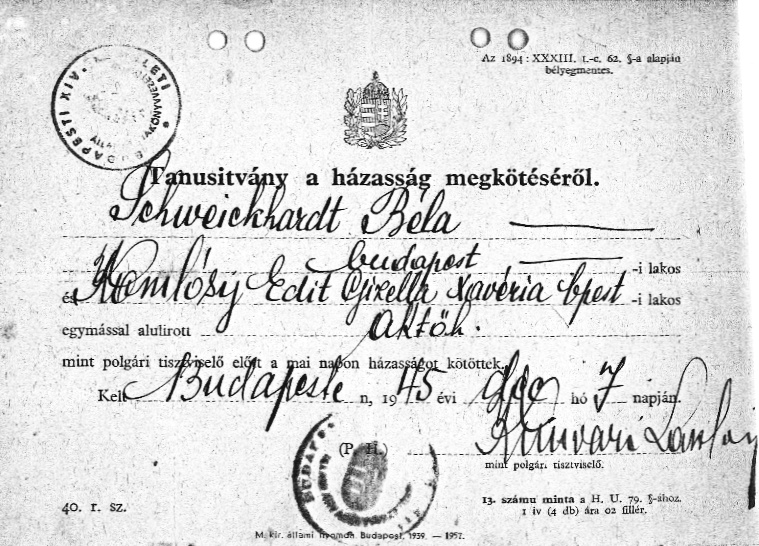 Az 1894 : XXXIII. t.-c. 62. §-a alapján
bélyegmentes.
BUDAPESTI XIV.
Tanusitvány a házasság megkötéséről.
Schweickhardt Béla
budapest -i lakos
és Komlósy Edit Gizella Xavéria bpest -i lakos
egymással alulirott
mint polgári tisztviselő előtt a mai napon házasságot kötöttek.
Kelt Budapest n, 1945 évi dec hó 7 napján.
(P. H.)
mint polgár. tisztviselő.
40. r. sz.
13. számu minta a H. U. 79. §-ához.
1 iv (4 db) ára 02 fillér.
M. kir. állami nyomda Budapest, 1939. — 1957.